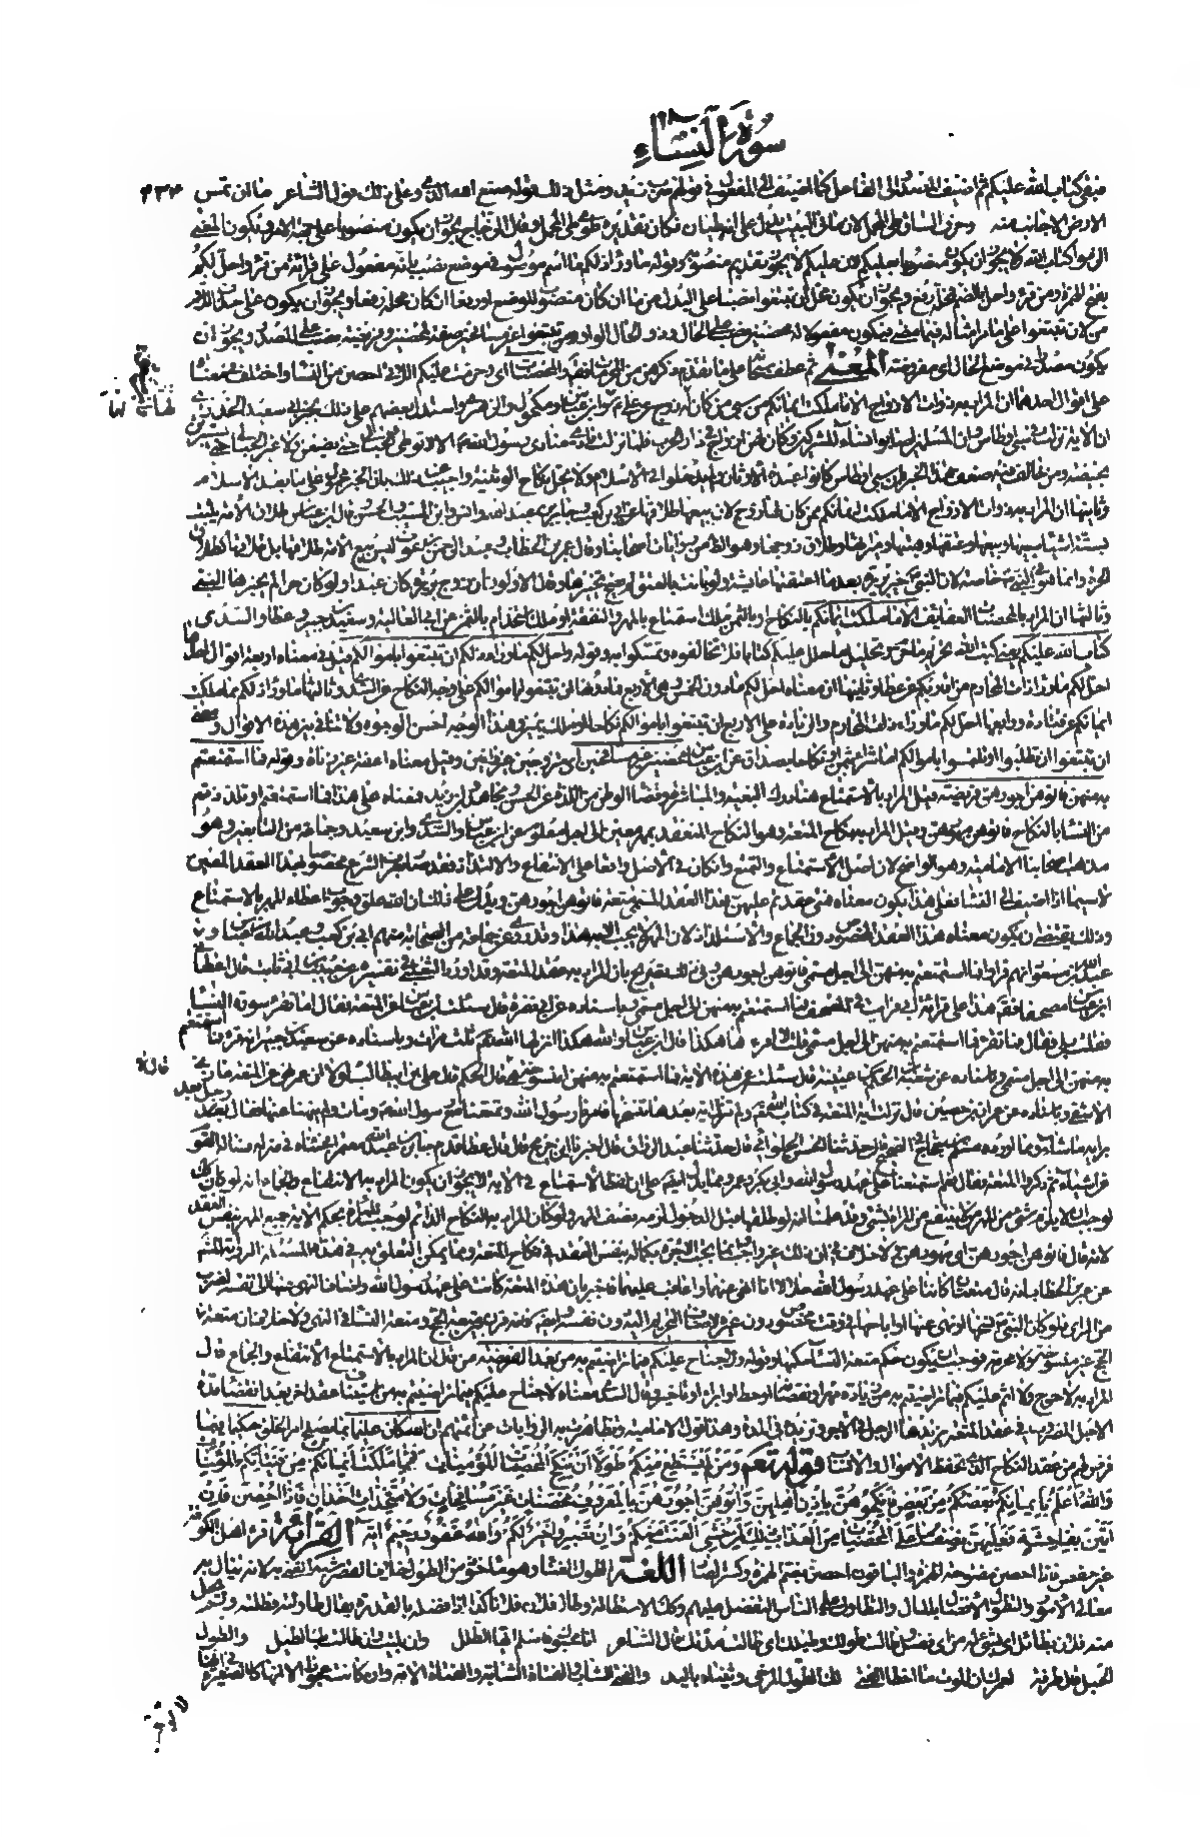 سورة النساء
فبقي كتاب الله عليكم ثم اضيف المصدر الى الفاعل كما اضيف الى المفعول في قولهم ضرب زيد ومثل ذلك قوله صنع الله الذي وعلى ذلك قول الشاعر ما ان يمس
الارض الا جانب منه وحرف الساق طي المحمل لان ما في البيت يدل على انه طيان فكان تقديره طوى طي المحمل وقال الزجاج يجوز ان يكون منصوبا على جهة الامر ويكون المعنى
الزموا كتاب الله ولا يجوز ان يكون منصوبا بعليكم لان عليكم لا يجوز تقديم منصوبه وقوله ما وراء ذلكم ما اسم موصول في موضع نصب بانه مفعول على قراءة من قرأ واحل لكم
بفتح الهمزة ومن قرأ واحل بالضم فمحله رفع ويجوز ان يكون محل ان تبتغوا نصبا على البدل من ما ان كان منصوب الموضع او رفعا ان كان محله رفعا ويجوز ان يكون على حذف اللام
من لان تبتغوا على ما مر امثاله فيما مضى فيكون مفعولا له محصنين نصب على الحال وذو الحال الواو من تبتغوا وغير مسافحين صفة لمحصنين وفريضة نصب على المصدر ويجوز ان
يكون مصدرا في موضع الحال اي مفروضة المعنى ثم عطف سبحانه على ما تقدم ذكرهن من المحرمات فقال والمحصنات اي وحرمت عليكم اللاتي احصن من النساء واختلف في معناه
على اقوال احدها ان المراد به ذوات الازواج الا ما ملكت ايمانكم من سبي من كان لها زوج عن علي ع وابن عباس ومكحول والزهري واستدل بعضهم على ذلك بخبر ابي سعيد الخدري
ان الآية نزلت في سبي اوطاس وان المسلمين اصابوا نساء المشركين وكان لهن ازواج في دار الحرب فلما نزلت نادى منادي رسول الله الا لا توطأ الحبالى حتى يضعن ولا غير الحبالى حتى يستبرئن
بحيضة ومن خالف فيه ضعف هذا الخبر بان سبي اوطاس كانوا عبدة الاوثان ولم يدخلوا في الاسلام ولا يحل نكاح الوثنية واجيب عن ذلك بان الخبر محمول على ما بعد الاسلام
وثانيها ان المراد به ذوات الازواج الا ما ملكت ايمانكم ممن كان لها زوج لان بيعها طلاقها عن ابي بن كعب وجابر بن عبد الله وانس وابن المسيب والحسن وقال ابن عباس طلاق الامة يثبت
بستة اشياء سبيها وبيعها وعتقها وهبتها وميراثها وطلاق زوجها وهو الظاهر من روايات اصحابنا وقال عمر بن الخطاب وعبد الرحمن بن عوف ليس بيع الامة طلاقها بل طلاقها كطلاق
الحرة وانما هو في السبي خاصة لان النبي خير بريرة بعد ما اعتقتها عائشة ولو بانت بالعتق لم يصح تخييرها وقال الاولون ان زوج بريرة كان عبدا ولو كان حرا لم يخيرها النبي
وثالثها ان المراد بالمحصنات العفائف الا ما ملكت ايمانكم بالنكاح او بالثمن ملك استمتاع بالمهر والنفقة او ملك استخدام بالثمن عن ابي العالية وسعيد بن جبير وعطا والسدي
كتاب الله عليكم يعني كتب الله تحريم ما حرم وتحليل ما حلل عليكم كتابا فلا تخالفوه وتمسكوا به وقوله واحل لكم ما وراء ذلكم ان تبتغوا باموالكم قيل في معناه اربعة اقوال احدها
احل لكم ما وراء ذات المحارم من اقاربكم عن عطا وثانيها ان معناه احل لكم ما دون الخمس وهي الاربع فما دونها ان تبتغوا باموالكم على وجه النكاح عن السدي وثالثها ما وراء ذلكم بما ملكت
ايمانكم عن قتادة ورابعها احل لكم ما وراء ذات المحارم والزيادة على الاربع ان تبتغوا باموالكم نكاحا او ملك يمين وهذا الوجه احسن الوجوه ولا تنافي بين هذه الاقوال ومعنى
ان تبتغوا ان تطلبوا او تلتمسوا باموالكم اما شراء بثمن او نكاحا بصداق عن ابن عباس محصنين غير مسافحين اي متزوجين غير زانين وقيل معناه اعفة غير زناة وقوله فما استمتعتم
به منهن فآتوهن اجورهن فريضة قيل المراد بالاستمتاع هنا درك البغية والمباشرة وقضاء الوطر من اللذة عن الحسن ومجاهد وابن زيد فمعناه على هذا فما استمتعتم او تلذذتم
من النساء بالنكاح فآتوهن مهورهن وقيل المراد به نكاح المتعة وهو النكاح المنعقد بمهر معين الى اجل معلوم عن ابن عباس والسدي وابن سعيد وجماعة من التابعين وهو
مذهب اصحابنا الامامية وهو الواضح لان اصل الاستمتاع والتمتع وان كان في الاصل واقعا على الانتفاع والالتذاذ فقد صار بعرف الشرع مخصوصا بهذا العقد المعين
لا سيما اذا اضيف الى النساء فعلى هذا يكون معناه فمتى عقدتم عليهن هذا العقد المسمى متعة فآتوهن اجورهن ويدل على ذلك ان الله علق وجوب اعطاء المهر بالاستمتاع
وذلك يقتضي ان يكون معناه هذا العقد المخصوص دون الجماع والاستلذاذ لان المهر لا يجب الا به هذا وقد روي عن جماعة من الصحابة منهم ابي بن كعب وعبد الله بن عباس و
عبد الله بن مسعود انهم قرأوا فما استمتعتم به منهن الى اجل مسمى فآتوهن اجورهن وفي ذلك تصريح بان المراد به عقد المتعة وقد اورد الثعلبي في تفسيره عن حبيب بن ابي ثابت قال اعطاني
ابن عباس مصحفا فقال هذا على قراءة ابي فرأيت في المصحف فما استمتعتم به منهن الى اجل مسمى وباسناده عن ابي نضرة قال سئلت ابن عباس عن المتعة فقال اما تقرء سورة النساء
فقلت بلى فقال فما تقرء فما استمتعتم به منهن الى اجل مسمى قلت لا اقرءها هكذا قال ابن عباس والله هكذا انزلها الله تعالى ثلث مرات وباسناده عن سعيد بن جبير انه قرء فما استمتعتم
به منهن الى اجل مسمى وباسناده عن شعبة عن الحكم بن عيينة قال سئلته عن هذه الآية فما استمتعتم به منهن امنسوخة هي قال الحكم قال علي بن ابي طالب لولا ان عمر نهى عن المتعة ما زنى
الا شقي وباسناده عن عمران بن حصين قال نزلت آية المتعة في كتاب الله ولم تنزل آية بعدها تنسخها فامرنا رسول الله وتمتعنا مع رسول الله ومات ولم ينهنا عنها فقال رجل بعد
برأيه ما شاء ومما اورده مسلم بن حجاج في الصحيح حدثنا الحسن الحلواني قال حدثنا عبد الرزاق قال اخبرنا ابن جريج قال قال عطا قدم جابر بن عبد الله معتمرا فجئناه في منزله فساله القوم
عن اشياء ثم ذكروا المتعة فقال نعم استمتعنا على عهد رسول الله وابي بكر وعمر ومما يدل ايضا على ان لفظ الاستمتاع في الآية لا يجوز ان يكون المراد به الانتفاع والجماع انه لو كان كذلك
لوجب ان لا يلزم شيء من المهر من لا ينتفع من المرأة بشيء وقد علمنا انه لو طلقها قبل الدخول لزمه نصف المهر ولو كان المراد به النكاح الدائم لوجب للمرأة بحكم الآية جميع المهر بنفس العقد
لانه قال فآتوهن اجورهن اي مهورهن ولا خلاف في ان ذلك غير واجب وانما يجب الاجرة بكماله بنفس العقد في نكاح المتعة ومما يمكن التعلق به في هذه المسئلة الرواية المشهورة
عن عمر بن الخطاب انه قال متعتان كانتا على عهد رسول الله حلالا انا انهى عنهما واعاقب عليهما فاخبر بان هذه المتعة كانت على عهد رسول الله واضاف النهي عنها الى نفسه لضرب
من الرأي فلو كان النبي نسخها او نهى عنها او اباحها في وقت مخصوص دون غيره لاضاف التحريم اليه دون نفسه وايضا فانه قرن بين متعة الحج ومتعة النساء في النهي ولا خلاف ان متعة
الحج غير منسوخة ولا محرمة فوجب ان يكون حكم متعة النساء حكمها وقوله ولا جناح عليكم فيما تراضيتم به من بعد الفريضة من قال ان المراد بالاستمتاع الانتفاع والجماع قال
المراد به لا حرج ولا اثم عليكم فيما تراضيتم به من زيادة مهر او نقصانه او حط او ابراء او تاخير وقال السدي معناه لا جناح عليكم فيما تراضيتم به من استيناف عقد اخر بعد انقضاء مدة
الاجل المضروب في عقد المتعة يزيدها الرجل في الاجر وتزيده في المدة وهذا قول الامامية وتظاهرت به الروايات عن ائمتهم ان الله كان عليما بما يصلح امر الخلق حكيما فيما
فرض لهم من عقد النكاح الذي به حفظ الاموال والانساب قوله تعالى وَمَنْ لَمْ يَسْتَطِعْ مِنْكُمْ طَوْلًا أَنْ يَنْكِحَ الْمُحْصَنَاتِ الْمُؤْمِنَاتِ فَمِنْ مَا مَلَكَتْ أَيْمَانُكُمْ مِنْ فَتَيَاتِكُمُ الْمُؤْمِنَاتِ
وَاللهُ أَعْلَمُ بِإِيمَانِكُمْ بَعْضُكُمْ مِنْ بَعْضٍ فَانْكِحُوهُنَّ بِإِذْنِ أَهْلِهِنَّ وَآتُوهُنَّ أُجُورَهُنَّ بِالْمَعْرُوفِ مُحْصَنَاتٍ غَيْرَ مُسَافِحَاتٍ وَلَا مُتَّخِذَاتِ أَخْدَانٍ فَإِذَا أُحْصِنَّ فَإِنْ
أَتَيْنَ بِفَاحِشَةٍ فَعَلَيْهِنَّ نِصْفُ مَا عَلَى الْمُحْصَنَاتِ مِنَ الْعَذَابِ ذَلِكَ لِمَنْ خَشِيَ الْعَنَتَ مِنْكُمْ وَأَنْ تَصْبِرُوا خَيْرٌ لَكُمْ وَاللهُ غَفُورٌ رَحِيمٌ آية القراءة قرء اهل الكوفة
غير حفص فاذا احصن مفتوحة الهمزة والباقون احصن بضم الهمزة وكسر الصاد اللغة الطول الغناء وهو ماخوذ من الطول خلاف القصر شبه الغنى به لانه ينال به
معالي الامور والتطول الافضال بالمال والتطاول على الناس التفضل عليهم وكذلك الاستطالة وطال فلان فلانا كذا اي فضله بالقدرة يقال طاولته فطلته ولم يحل
منه فلان بطائل اي بشيء له مزية وفضل وطالت طولك وطيلك اي طالت مدتك قال الشاعر انا محيوك فاسلم ايها الطلل وان بليت وان طالت بك الطيل والطول
الحبل قال طرفة لعمرك ان الموت ما اخطأ الفتى لك الطول المرخى وثنياه باليد والفتى الشاب والفتاة الشابة والفتاة الامة وان كانت عجوزا لانها كالصغيرة في انها
لا توقر